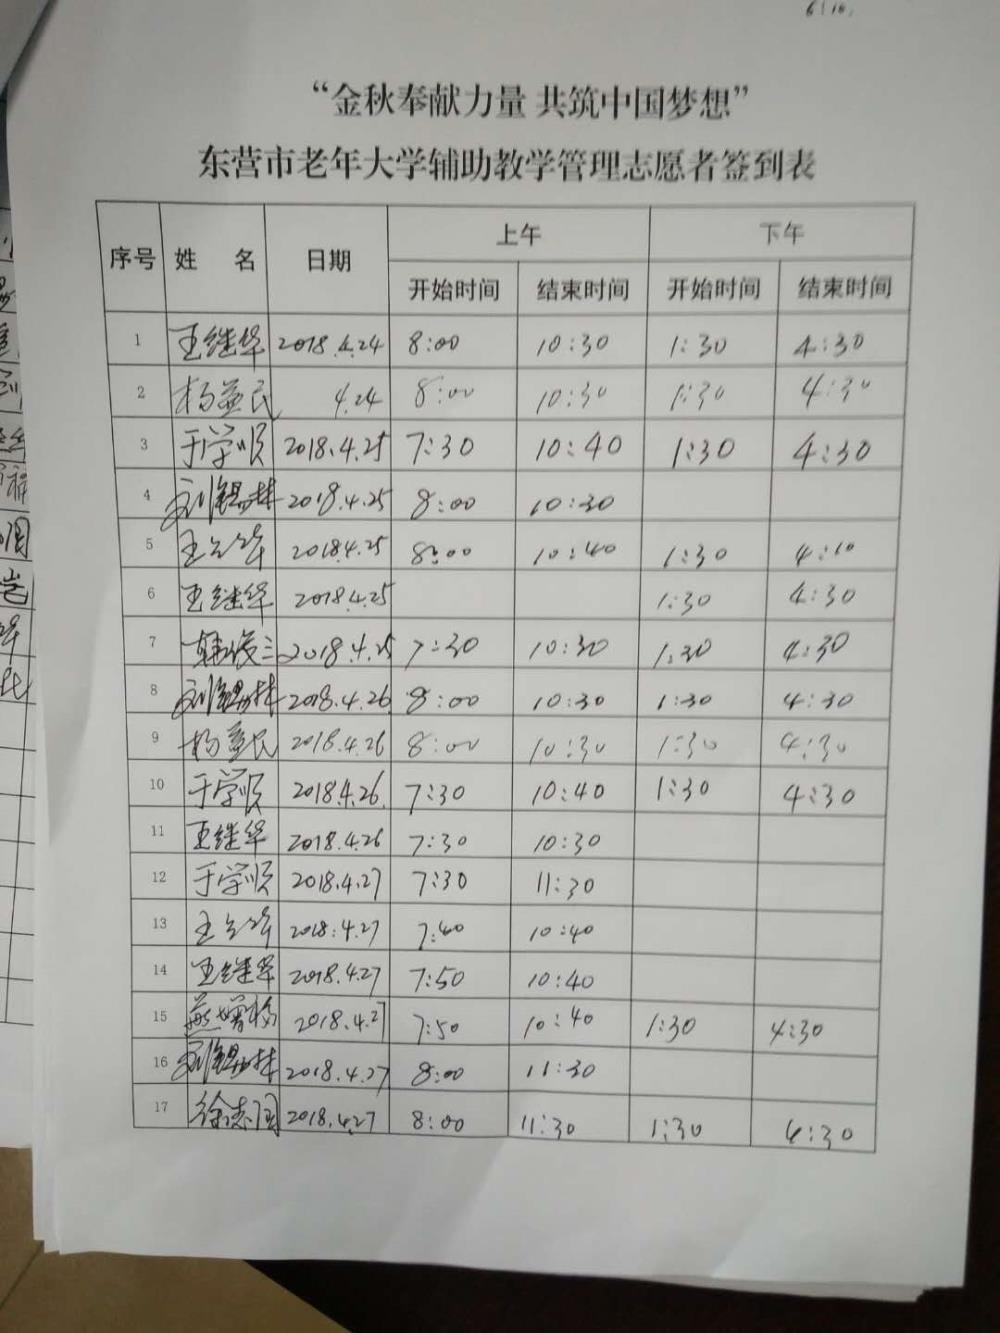 “金秋奉献力量 共筑中国梦想”
东营市老年大学辅助教学管理志愿者签到表
序号 姓 名 日期 上午 下午
开始时间 结束时间 开始时间 结束时间
1 王继华 2018.4.24 8:00 10:30 1:30 4:30
2 杨益民 4.24 8:00 10:30 1:30 4:30
3 于学顺 2018.4.25 7:30 10:40 1:30 4:30
4 刘锡林 2018.4.25 8:00 10:30
5 王 2018.4.25 8:00 10:40 1:30 4:10
6 王继华 2018.4.25 1:30 4:30
7 韩俊三 2018.4.25 7:30 10:30 1:30 4:30
8 刘锡林 2018.4.26 8:00 10:30 1:30 4:30
9 杨益民 2018.4.26 8:00 10:30 1:30 4:30
10 于学顺 2018.4.26 7:30 10:40 1:30 4:30
11 王继华 2018.4.26 7:30 10:30
12 于学顺 2018.4.27 7:30 11:30
13 王 2018.4.27 7:40 10:40
14 王继华 2018.4.27 7:50 10:40
15 2018.4.27 7:50 10:40 1:30 4:30
16 刘锡林 2018.4.27 8:00 11:30
17 徐志国 2018.4.27 8:00 11:30 1:30 4:30